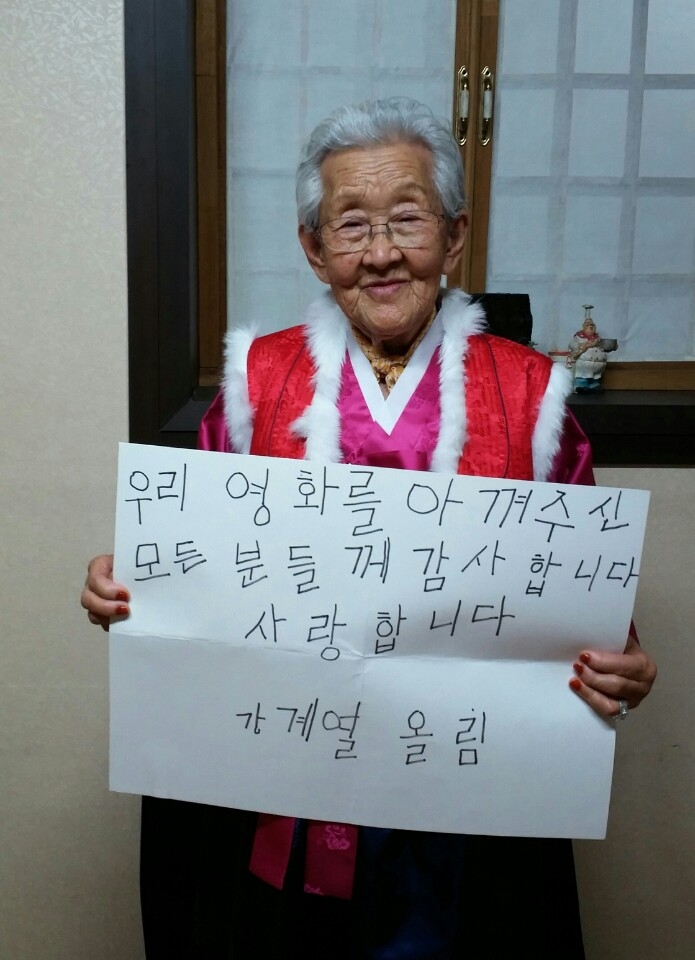 우리 영화를 아껴주신
모든 분들께 감사합니다
사랑합니다
강계열 올림